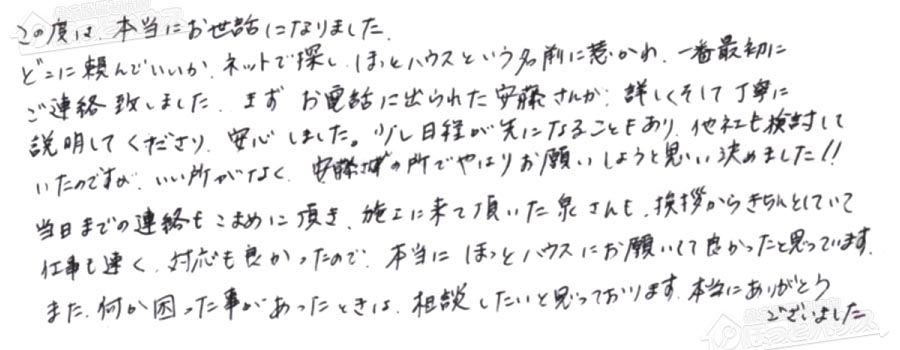 この度は、本当にお世話になりました。
どこに頼んでいいか、ネットで探し、ほっとハウスという名前に惹かれ、一番最初に
ご連絡致しました。まず、お電話に出られた安藤さんが、詳しくそして丁寧に
説明してくださり、安心しました。少し日程が先になることもあり、他社も検討して
いたのですが、いい所がなく、安藤さんの所でやはりお願いしようと思い決めました!!
当日までの連絡もこまめに頂き、施工に来て頂いた泉さんも、挨拶からきちんとしていて
仕事も速く、対応も良かったので、本当にほっとハウスにお願いして良かったと思っています。
また、何か困った事があったときは、相談したいと思っております。本当にありがとう
ございました
ほっとハウス